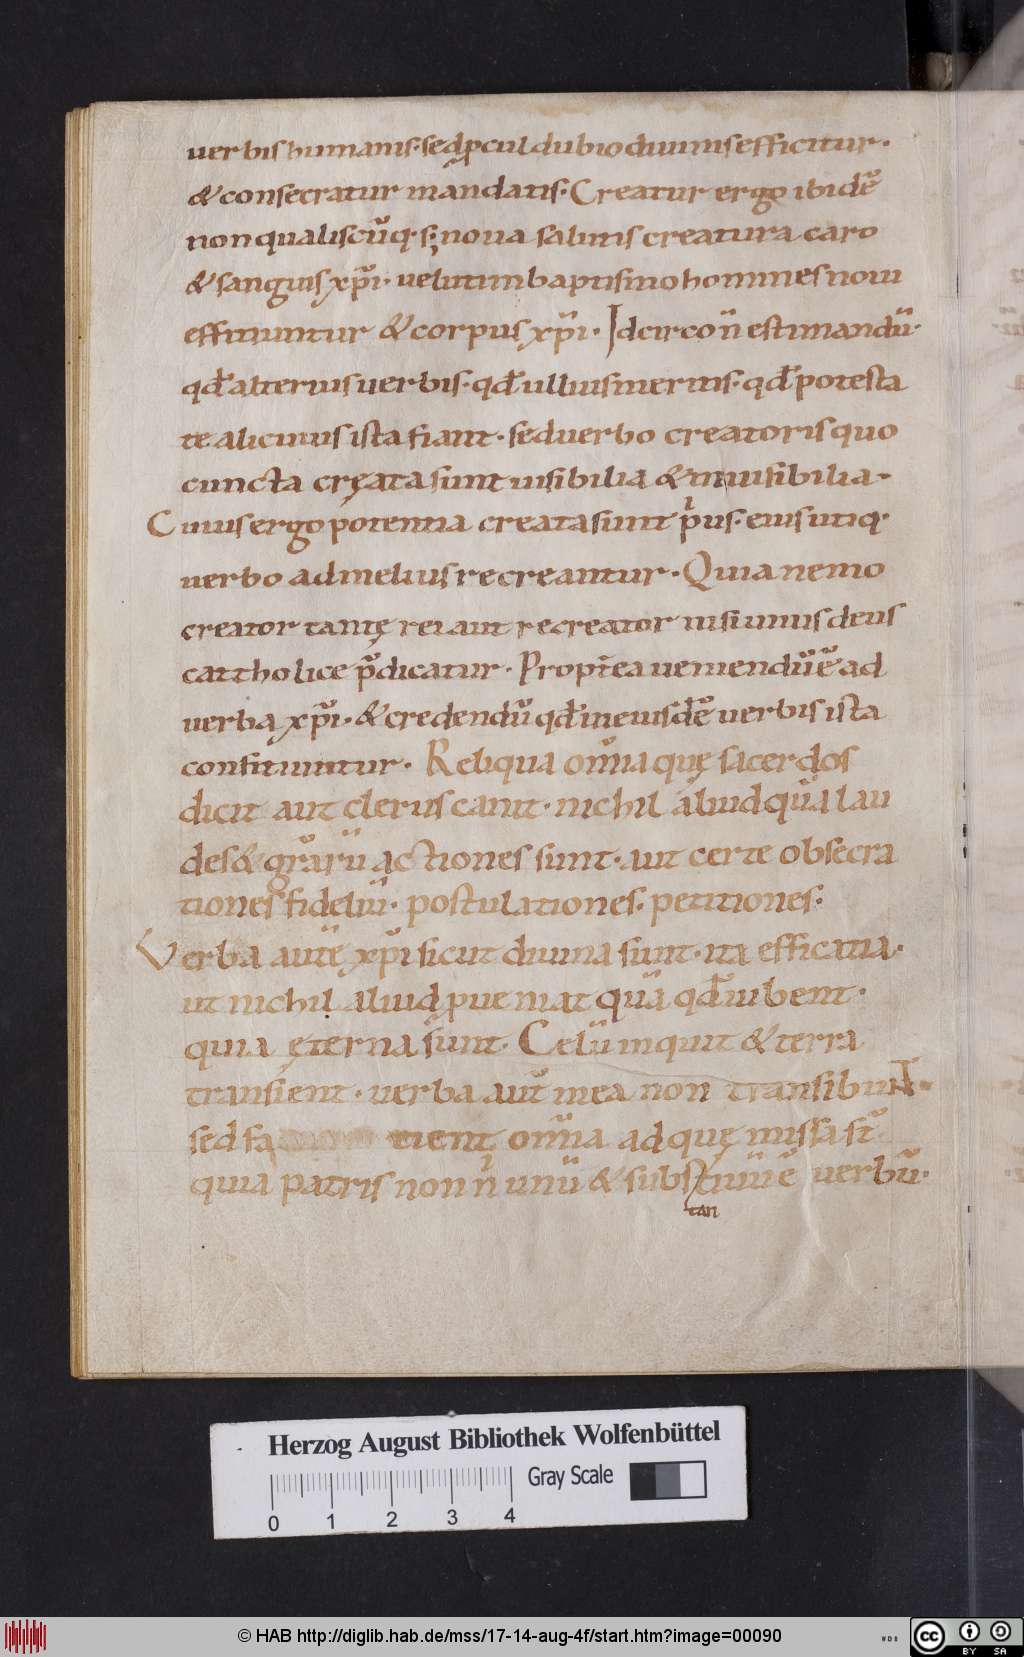 uerbis humanis· sed ꝓcul dubio diuinis efficitur·
& consecratur mandatis· Creatur ergo ibidē
non qualiscūq· s; noua salutis creatura caro
& sanguis xp̄i· uelut in baptismo homines noui
effitiuntur & corpus xp̄i· Idcirco n̄ estimandū·
qđ alterius uerbis· qđ ullius meritis· qđ potesta
te alicuius ista fiant· sed uerbo creatoris quo
cuncta cręata sunt uisibilia & inuisibilia·
Cuius ergo potentia creata sunt p̍us· eius utiq·
uerbo ad melius recreantur· Quia nemo
creator tantę rei aut recreator nisi unus deus
cattholice p̄dicatur· Propt̄ea ueniendū ē ad
uerba xp̄i· & credendū qđ in eiusdē uerbis ista
confitiuntur· Reliqua om̄ia quę sacerdos
dicit aut clerus canit· nichil aliud quā lau
des & gr̄arū actiones sunt· aut certe obsecra
tiones fideliū· postulationes· petitiones·
Verba autē xp̄i sicut diuina sunt· ita efficatia·
ut nichil aliud ꝓueniat quā qđ iubent·
quia ęterna sunt· Celū inquit & terra
transient· uerba aut̄ mea non transibunt·
sed fa cient om̄ia ad quę missa st̄
quia patris non n̍ unū & substiuū ē uerbū·
tan
Herzog August Bibliothek Wolfenbüttel
Gray Scale
0 1 2 3 4
© HAB http://diglib.hab.de/mss/17-14-aug-4f/start.htm?image=00090
WDB
cc BY SA